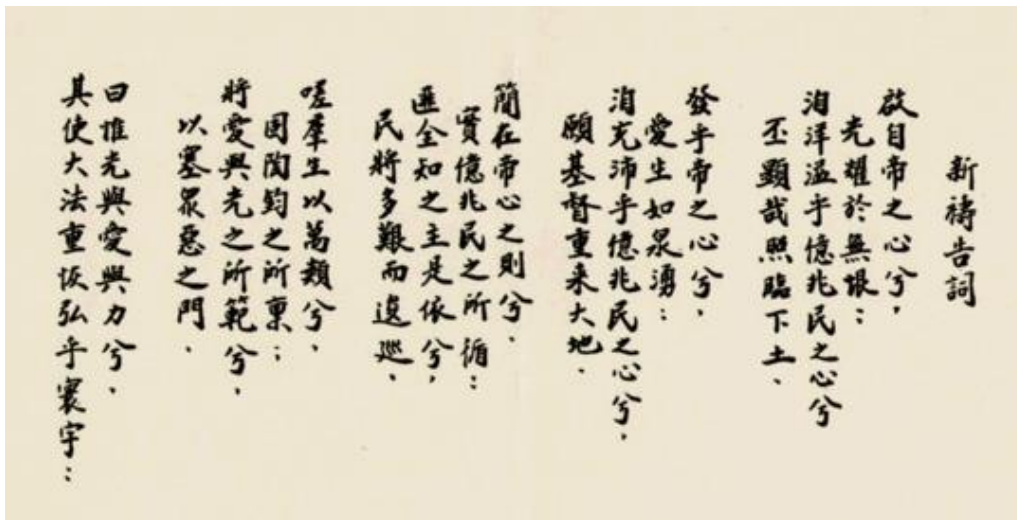 新禱告詞
啟自帝之心兮，
光耀於無垠：
洎洋溢乎億兆民之心兮
丕顯哉照臨下土、
發乎帝之心兮，
愛生如泉湧：
洎充沛乎億兆民之心兮，
願基督重来大地、
簡在帝心之則兮、
實億兆民之所循：
匯全知之主是依兮，
民將多艱而逡巡、
嗟羣生以萬類兮、
固陶鈞之所稟；
將愛與光之所範兮、
以塞眾惡之門、
曰惟光與愛與力兮、
其使大法重恢弘乎寰宇：